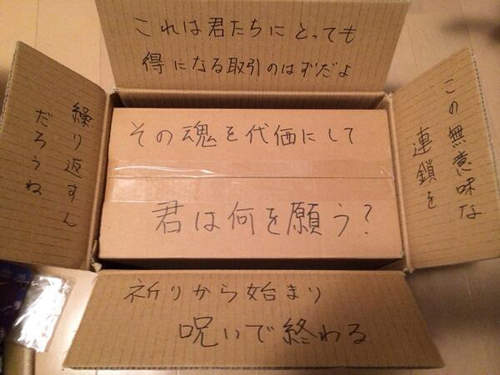 これは君たちにとっても
得になる取引のはずだよ
この無意味な
連鎖を
繰り返すん
だろうね
その魂を代価にして
君は何を願う？
祈りから始まり
呪いで終わる